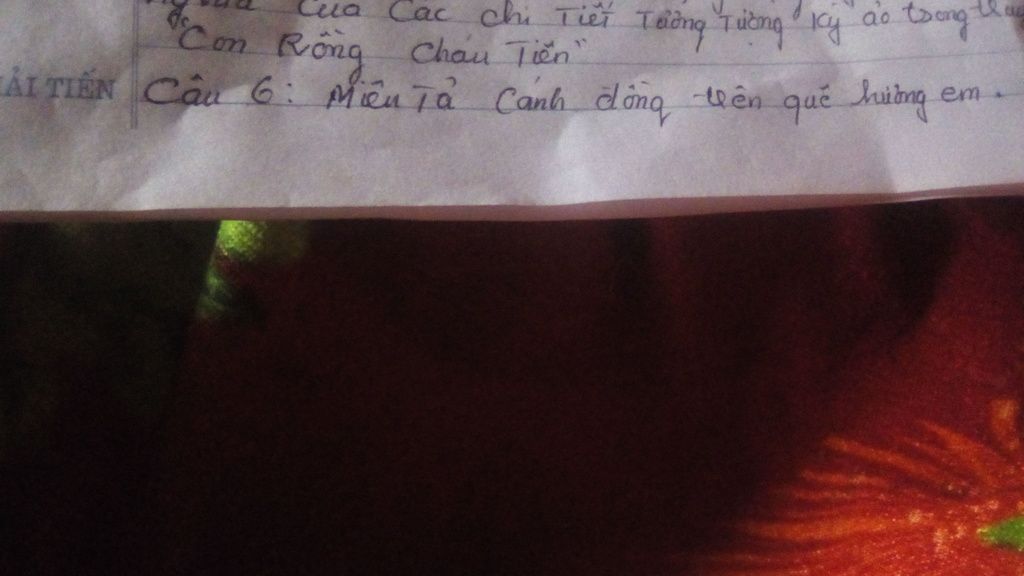 của các chi tiết tưởng tượng kỳ ảo trong
"Con Rồng cháu Tiên"
ẢI TIẾN
Câu 6: Miêu Tả cánh đồng trên quê hương em.